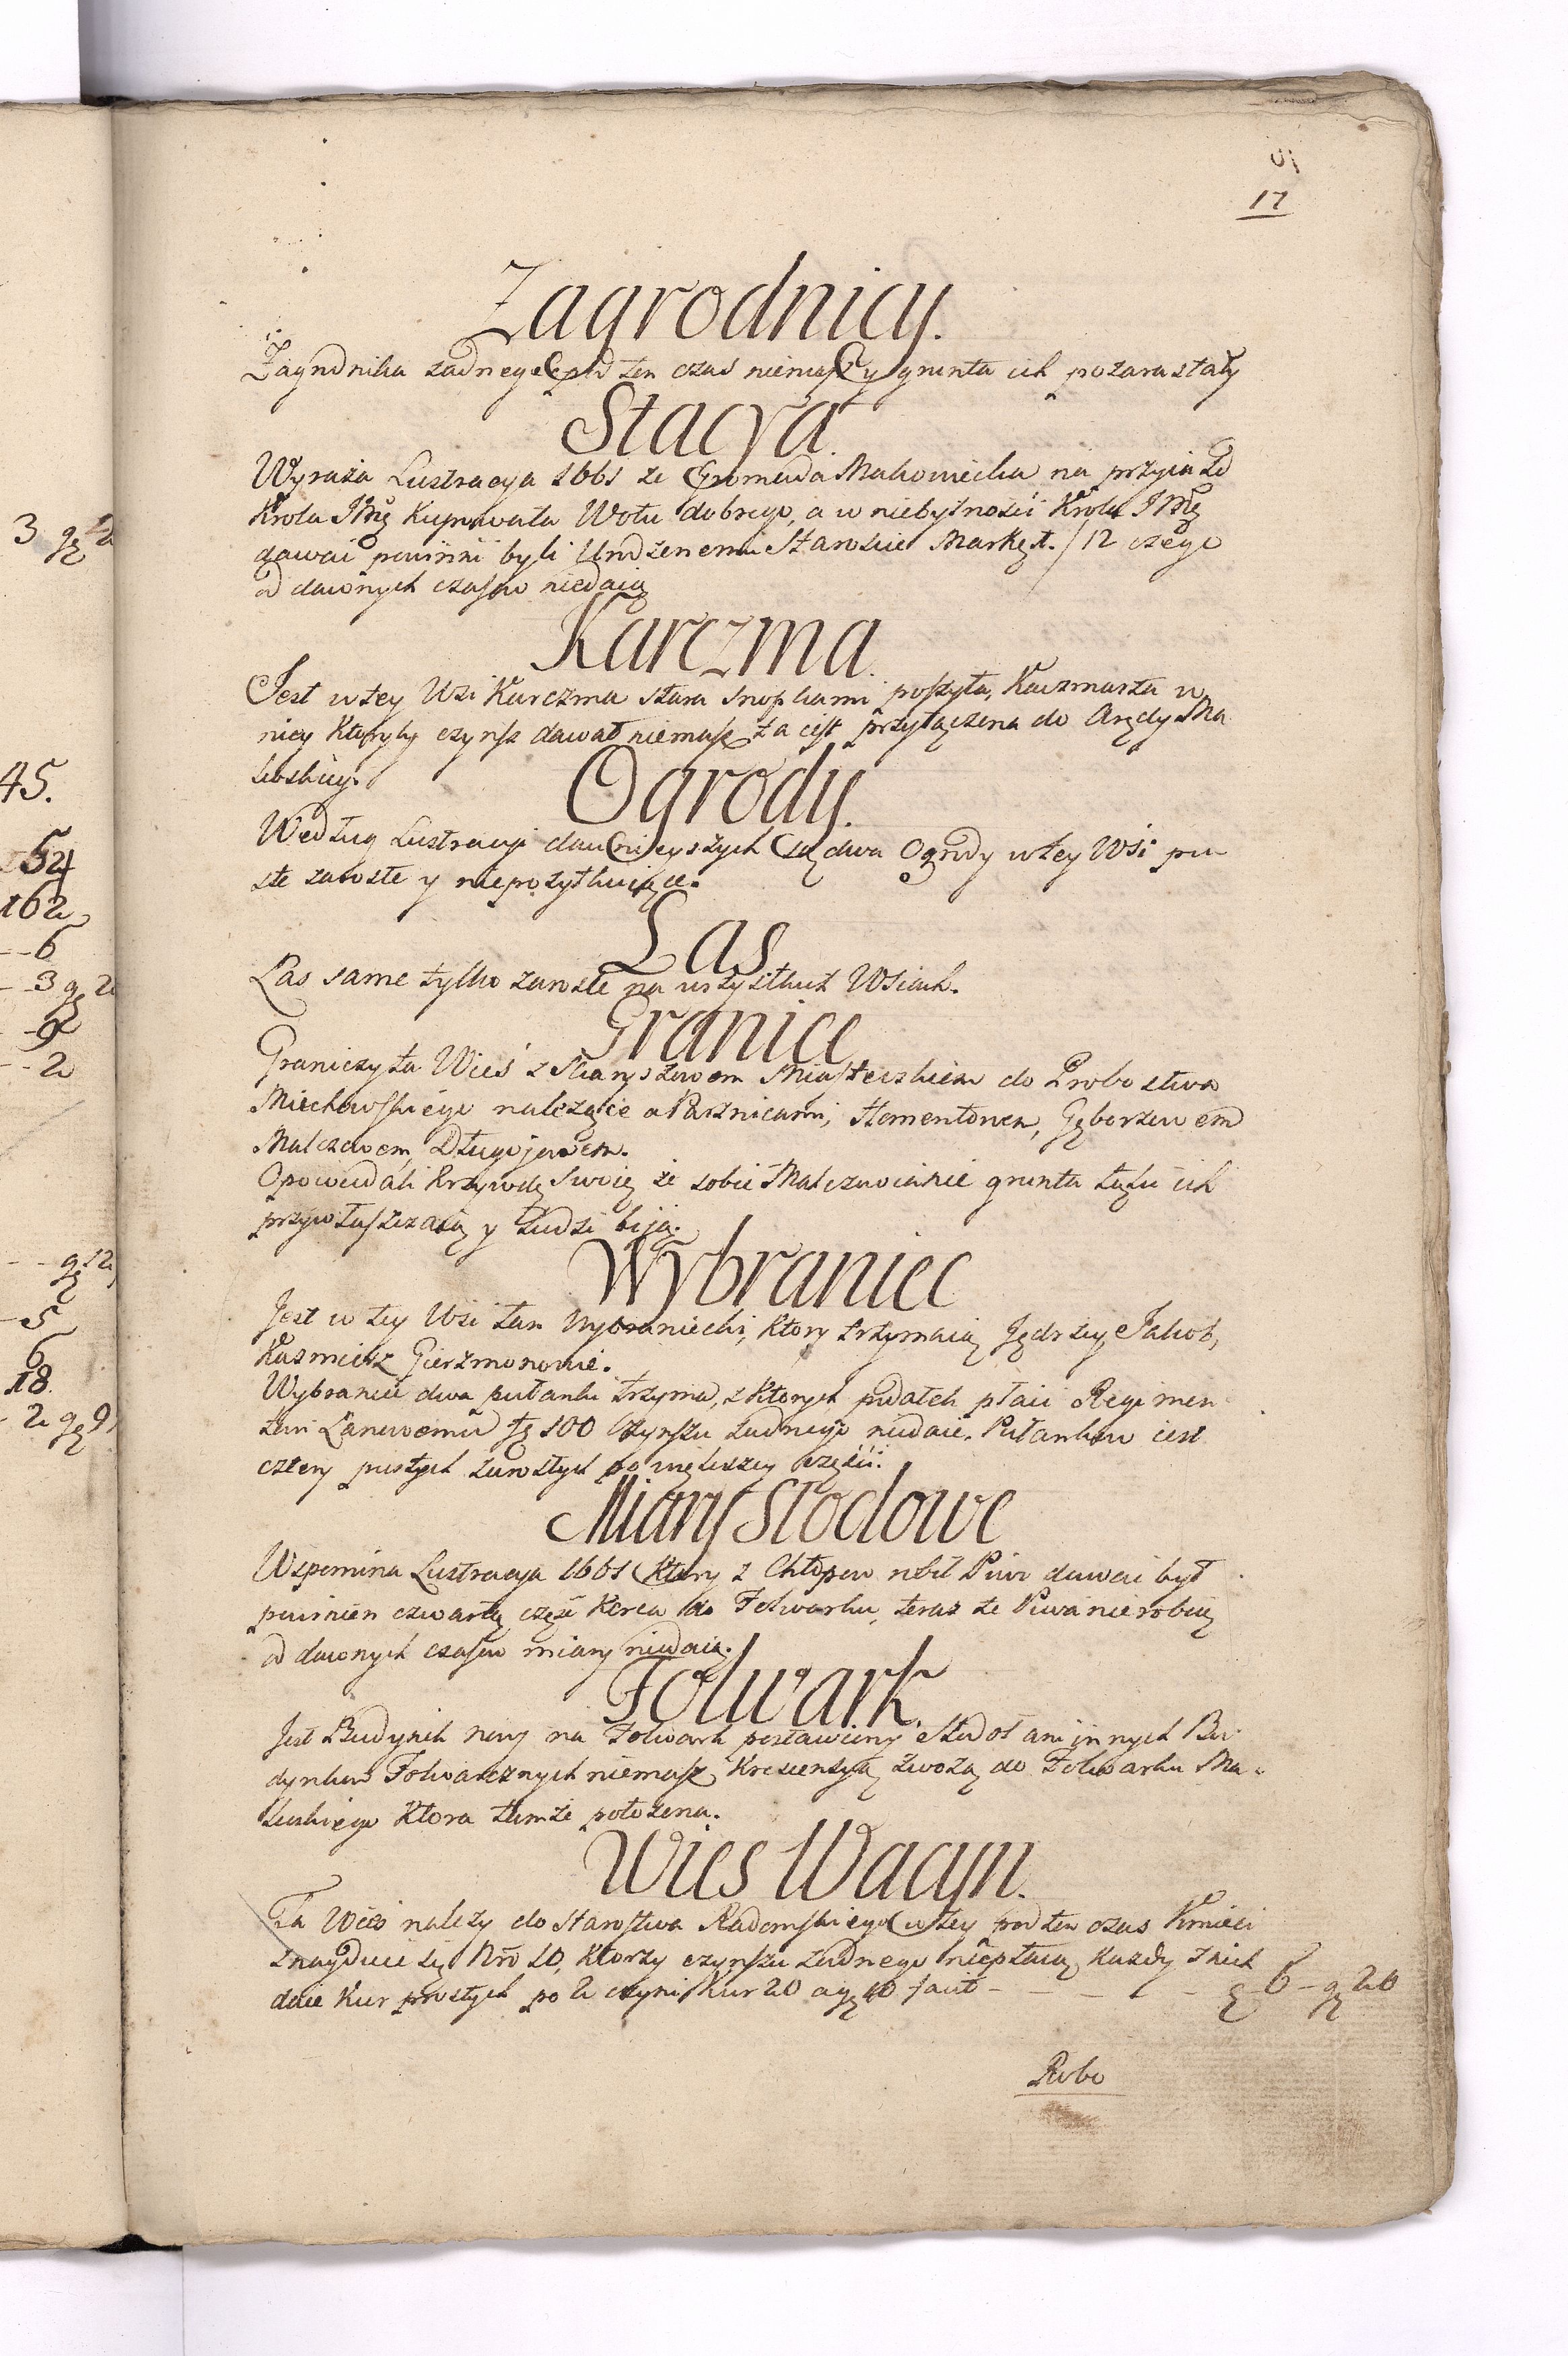 17
Zagrodnicy.
Zagrodnika zadnego pod ten czas niemasz y grunta ich pozarastały
Stacya.
Wyraża Lustracya 1661 ze Gromada Makowiecka na przyiazd
Krola JMę Kupowała Wołu dobrego, a w niebytności Krola JMę
dawać powinni byli Urodzenemu Staroscie Marką t. / 12 czego
od dawnych czasow niedaią
Karczma.
Jest w tey Wsi Karczma stara snopkami poszyta, Karzmarza w
niey Ktoryby czynsz dawał niemasz ta iest przyłączona do Arędy Ma
leoskiey.
Ogrody.
Według Lustracyi dawnieyszych są dwa Ogrody w tey Wsi pu
ste zarosłe y niepozytkuiące.
Las
Las same tylko zarosłe na wszystkich Wsiach.
Granice
Graniczy ta Wieś z Maryszewem Miasteczkiem do Probostwa
Miechowskiego nalezące a Parznicami, Homentowem, Gębarzewem
Malczewem, Długojowem.
Opowiadali Krzywdę Swoię że sobie Malczewianie grunta tuteż ich
przywłaszczaią y Ludzi biją.
Wybraniec
Jest w tey Wsi Łan Wybraniecki, Ktory trzymaią Jędrzey Jakob,
Kazmierz Gierzmonowie.
Wybraniec dwa pułanki trzyma, z Ktorych podatek płaci Regimen
towi Łanowemu fę 100 Czynszu zadnego niedaie. Pułankow iest
cztery pustych zarosłych po większey części.
Miary Słodowe
Wspomina Lustracya 1661 Ktory z Chłopow robił Piwo dawać był
powinien czwartą część Korca do Folwarku, teraz ze Piwa nierobią
od dawnych czasow miary niedaią.
Folwark.
Jest Budynek nowy na Folwark postawiony Stodoł ani innych Bu
dynkow Folwarcznych niemasz, Krescensyą zwożą do Folwarku Ma
kuskiego Ktora tamże położona.
Wies Wacyn.
Ta Wieś należy do Starostwa Radomskiego w tey pod ten czas Kmieci
znayduie się Nro 10, Ktorzy czynszu zadnego niepłacą, Kazdy z nich
daie Kur prostych po 2 czyni Kur 20 a gę 10 facit - - - - - ę 6 - gę 20
Robo